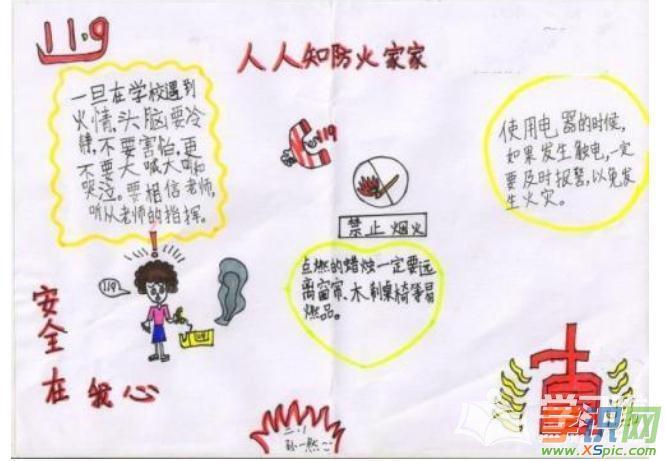 11.9
人人知防火家家
一旦在学校遇到
火情,头脑要冷
静,不要害怕,更
不要大喊大叫和
哭泣。要相信老师,
听从老师的指挥。
119
禁止烟火
使用电器的时候,
如果发生触电,一定
要及时报警,以免发
生火灾。
点燃的蜡烛一定要远
离窗帘、木制桌椅等易
燃品。
!
119
安全在我心
二.1
孙一然
学识网
XSpic.com